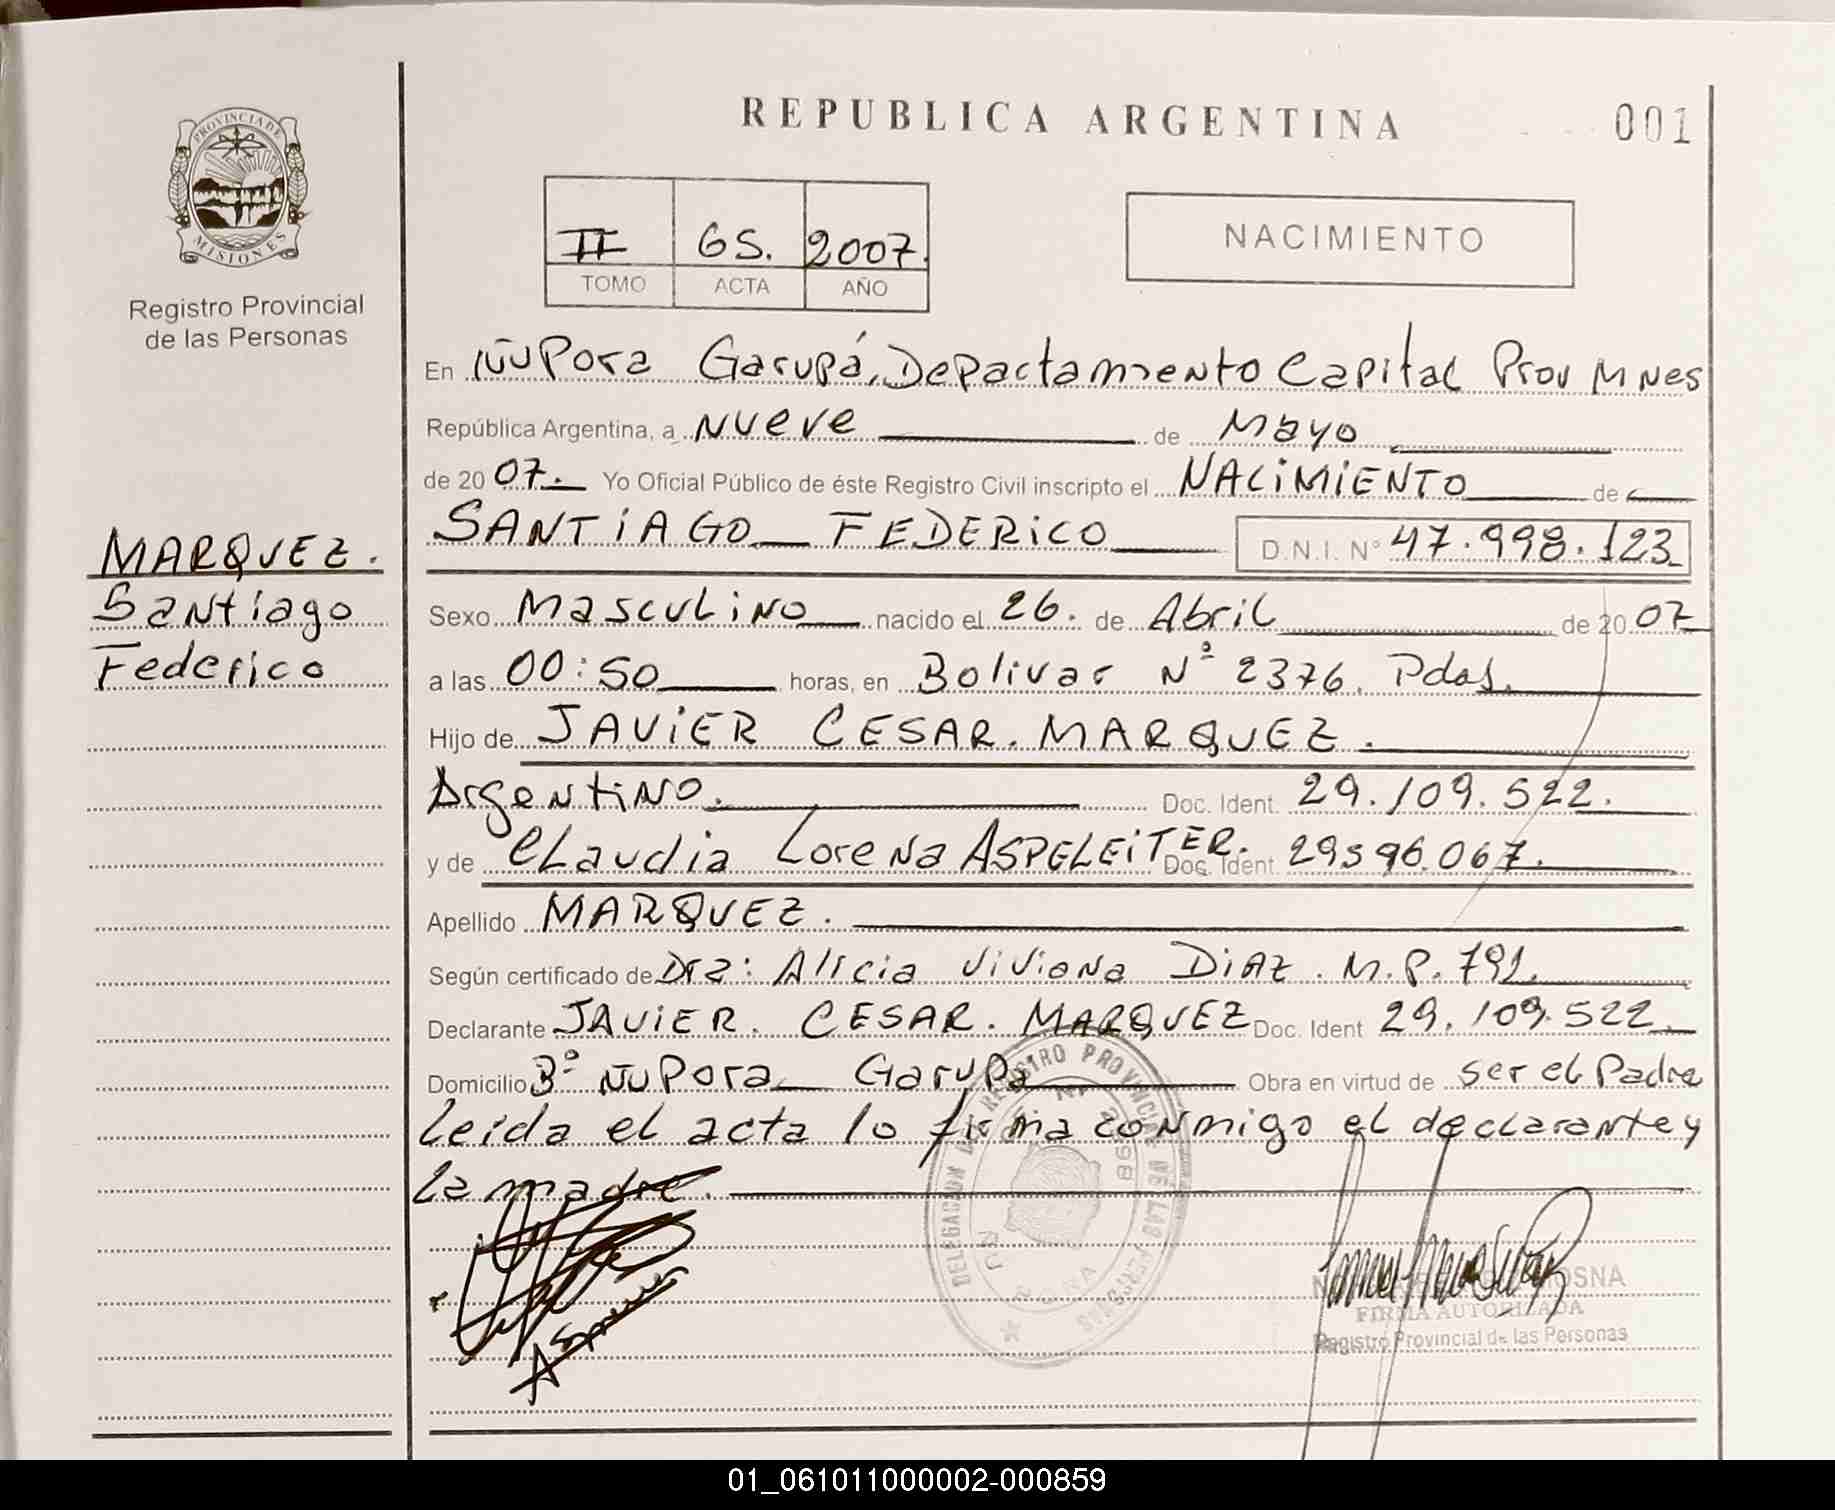 REPUBLICA ARGENTINA
001
PROVINCIA DE
MISIONES
Registro Provincial
de las Personas
II 65. 2007.
TOMO ACTA AÑO
NACIMIENTO
En Ñu Pora Garupá, Departamento Capital Prov Mnes
República Argentina, a Nueve de Mayo
de 2007. Yo Oficial Público de éste Registro Civil inscripto el NACIMIENTO de
SANTIAGO FEDERICO D.N.I. N° 47.998.123
MARQUEZ.
Santiago
Federico
Sexo Masculino nacido el 26. de Abril de 2007
a las 00:50 horas, en Bolivar Nº 2376. Pdas.
Hijo de JAVIER CESAR. MARQUEZ.
Argentino. Doc. Ident. 29.109.522.
y de Claudia Lorena ASPELEITER. Doc. Ident 29596.067.
Apellido MARQUEZ.
Según certificado de Dra: Alicia Viviana DIAZ. M.P. 791.
Declarante JAVIER. CESAR. MARQUEZ Doc. Ident 29.109.522.
Domicilio Bº Ñu Pora Garupa Obra en virtud de ser el Padre
Leida el acta lo firma conmigo el declarante y
la madre.
DELEGACION DEL REGISTRO PROVINCIAL DE LAS PERSONAS
FIRMA AUTORIZADA
Registro Provincial de las Personas
01_061011000002-000859